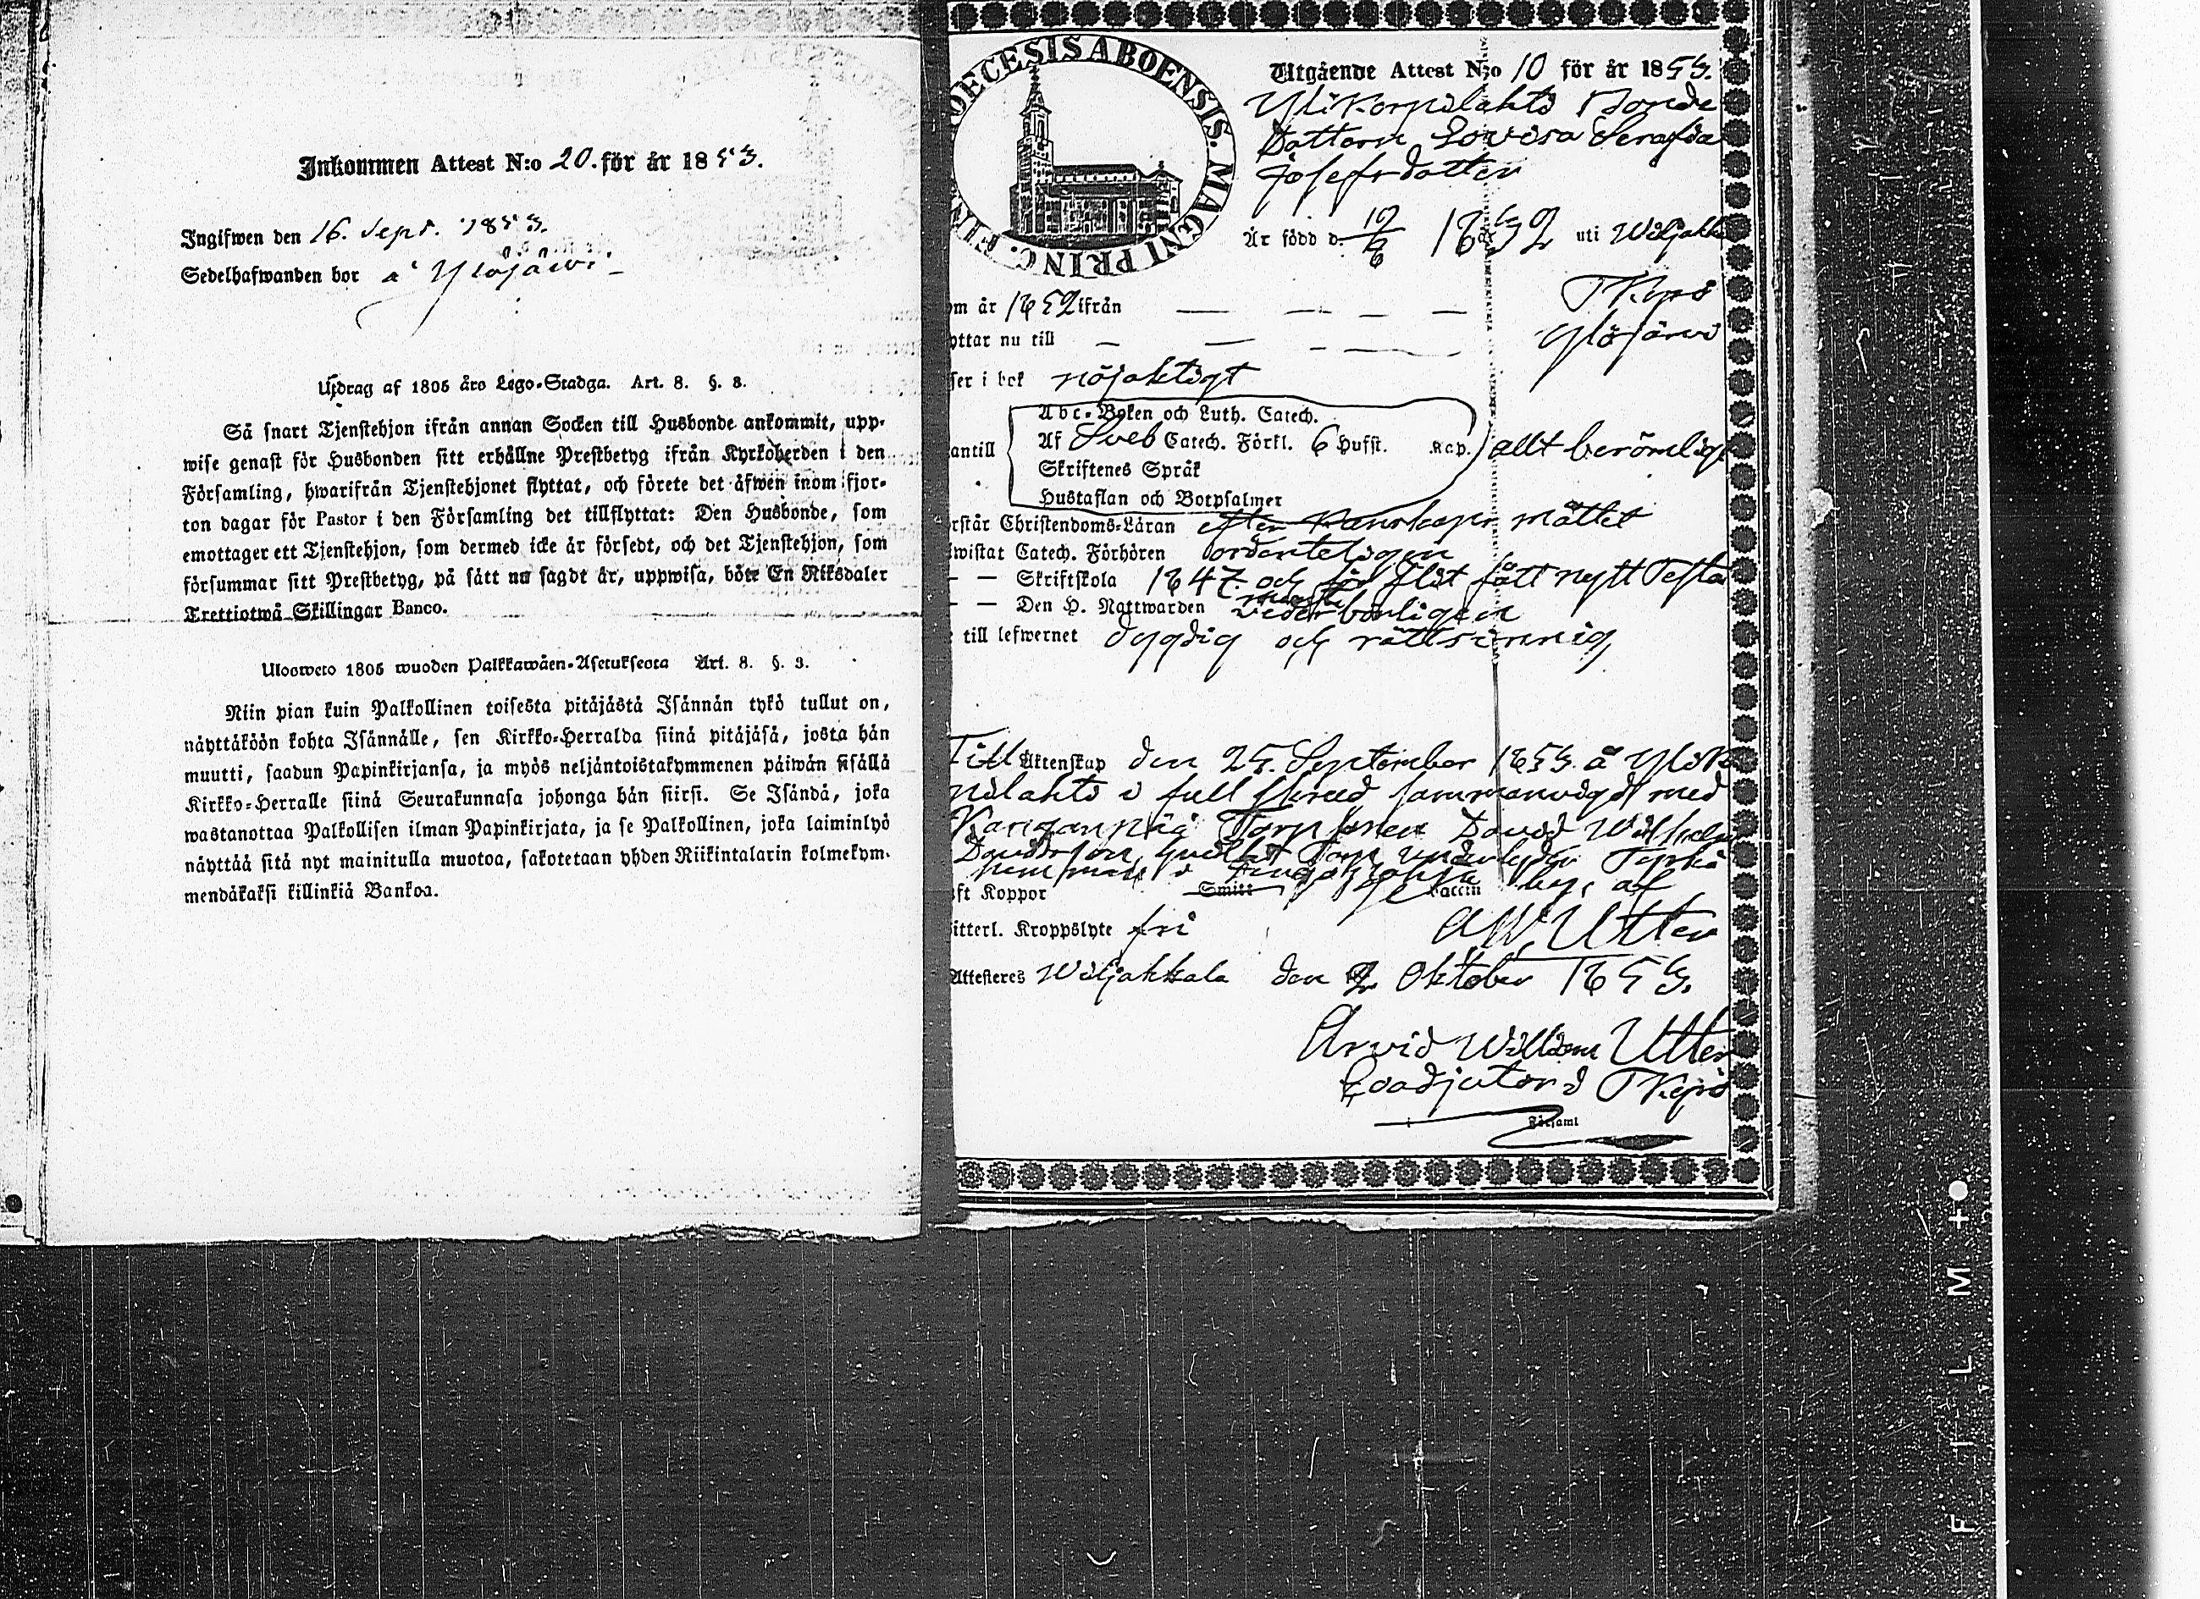 Inkommen Attest N:o 20. för år 1853.
Ingifwen den 16. Sept. 1853.
Sedelhafwanden bor å Ylöjärvi
Utdrag af 1805 års Lego-Stadga. Art. 8. §. 8.
Så snart Tjenstehjon ifrån annan Socken till Husbonde ankommit, upp-
wise genast för Husbonden sitt erhållne Prestbetyg ifrån Kyrkoherden i den
Församling, hwarifrån Tjenstehjonet flyttat, och förete det äfwen inom fjor-
ton dagar för Pastor i den Församling det tillflyttat: Den Husbonde, som
emottager ett Tjenstehjon, som dermed icke är försedt, och det Tjenstehjon, som
försummar sitt Prestbetyg, på sätt nu sagdt är, uppwisa, böte En Riksdaler
Trettiotwå Skillingar Banco.
Ulosweto 1805 wuoden Palkkawäen-Asetuksesta Art. 8. §. 3.
Niin pian kuin Palkollinen toisesta pitäjästä Isännän tykö tullut on,
näyttäköön kohta Isännälle, sen Kirkko-Herralda siinä pitäjäsä, josta hän
muutti, saadun Papinkirjansa, ja myös neljäntoistakymmenen päiwän sisällä
Kirkko-Herralle siinä Seurakunnasa johonga hän siirsi. Se Isändä, joka
wastanottaa Palkollisen ilman Papinkirjata, ja se Palkollinen, joka laiminlyö
näyttää sitä nyt mainitulla muotoa, sakotetaan yhden Riikintalarin kolmekym-
mendäkaksi killinkiä Bankoa.
OECESIS ABOENSIS. MAGNI PRINC. FIN
Utgående Attest N:o 10 för år 1853.
Ylikorpilahti Bonde
Dottern Lovisa Serafia
Josefsdotter
Är född d. 19/6 1832 uti Wiljakk
TKyrö
om år 1852 ifrån — — — —
yttar nu till — — — — Ylöjärvi
ser i bok nöjaktigt
Abc-Boken och Luth. Catech.
antill Af Sveb Catech. Förkl. 6 Hufst. Kap. allt berömligt
Skriftenes Språk
Hustaflan och Botpsalmer
rstår Christendoms-Läran efter kunskaps måttet
wistat Catech. Förhören ordenteligen
— — Skriftskola 1847 och för flit fått nytt Testa
— — Den H. Nattwarden vederbörligen
till lefwernet dygdig och rättsinnig
Till Äktenskap den 25. September 1853. å Ylik
pilahti i full skrud sammanvigd med
Torp David Wilhelm
Davidsson, hvilket Torp underlyder
by, af
ft Koppor Smitt Vaccin
AW. Utter
itterl. Kroppslyte fri
Attesteres Wiljakkala den 2 Oktober 1853.
Arvid William Utter
Coadjutor i TKyrö
Församl
FILM